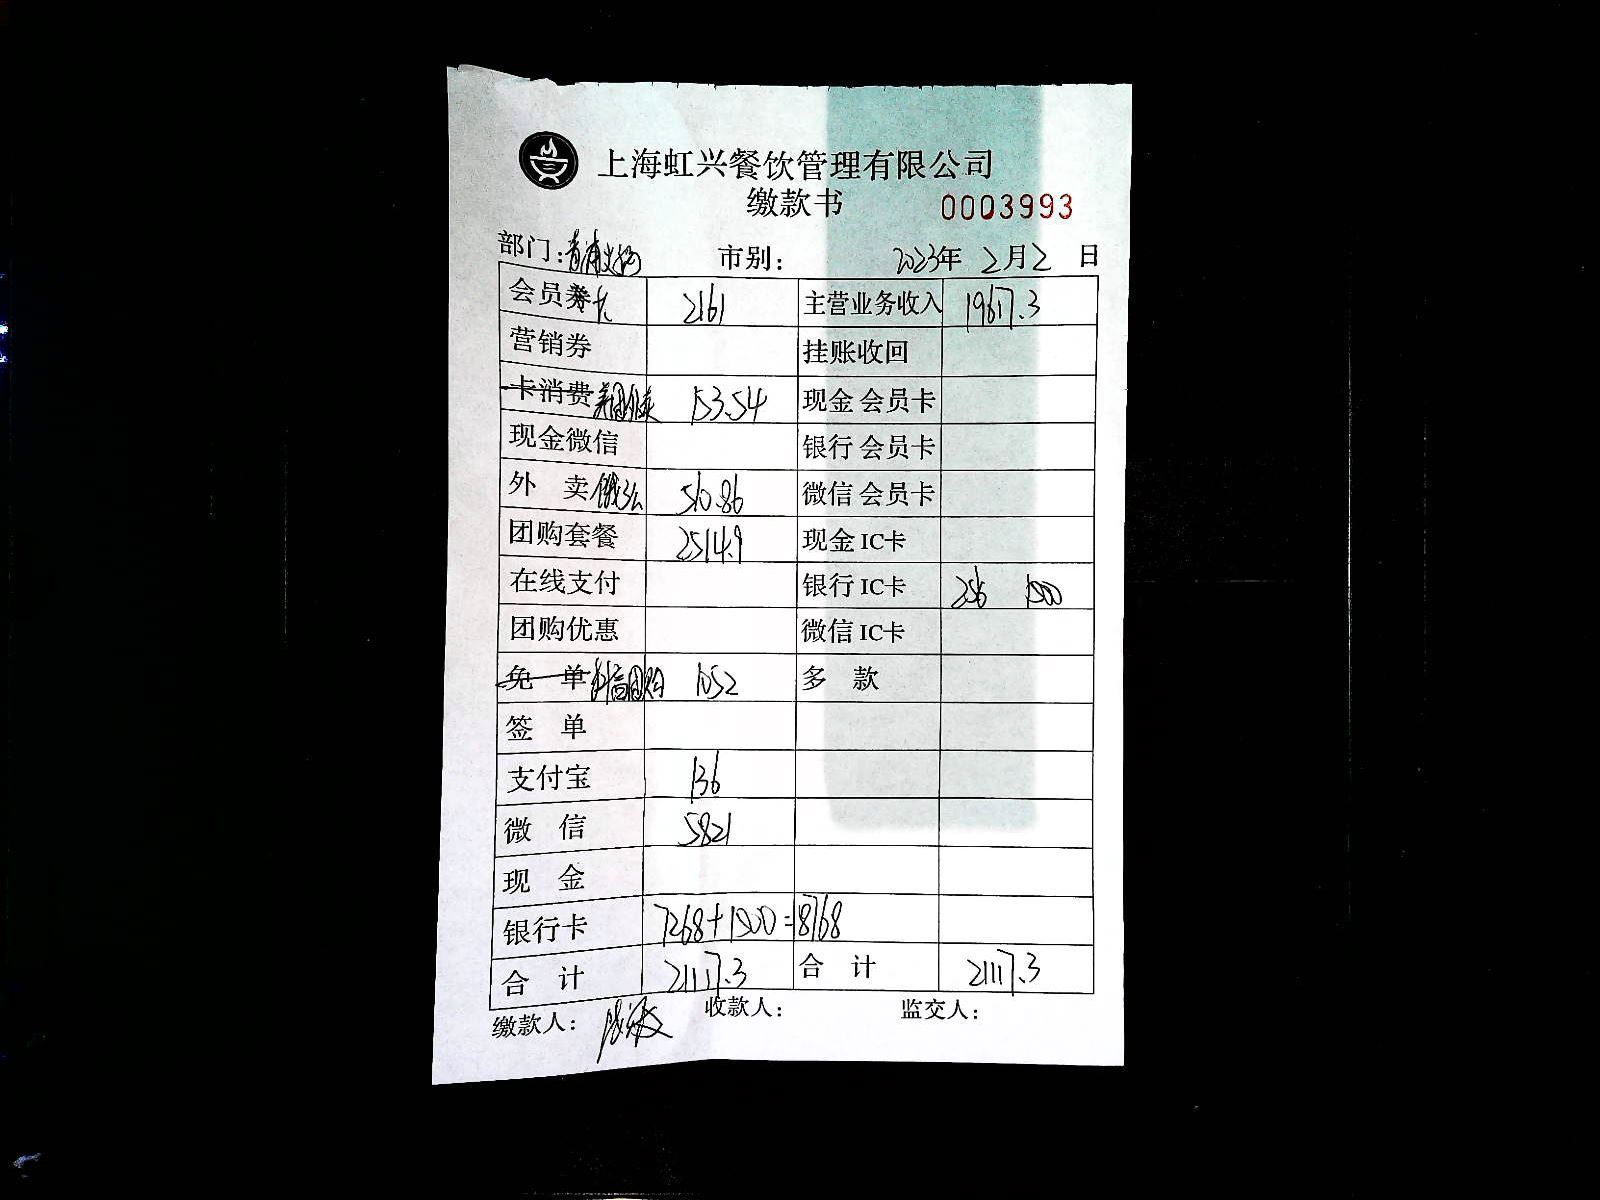 上海虹兴餐饮管理有限公司
缴款书 0003993
部门：青浦 市别： 2023年 2月2日
会员券卡 2161 主营业务收入 19617.3
营销券 挂账收回
卡消费 美团外卖 153.54 现金 会员卡
现金微信 银行 会员卡
外 卖 饿了么 510.86 微信 会员卡
团购套餐 2514.9 现金 IC卡
在线支付 银行 IC卡 256 1500
团购优惠 微信 IC卡
免 单 抖音团购 1052 多 款
签 单
支付宝 136
微 信 5821
现 金
银行卡 7268+1500=8768
合 计 21117.3 合 计 21117.3
缴款人： 收款人： 监交人：